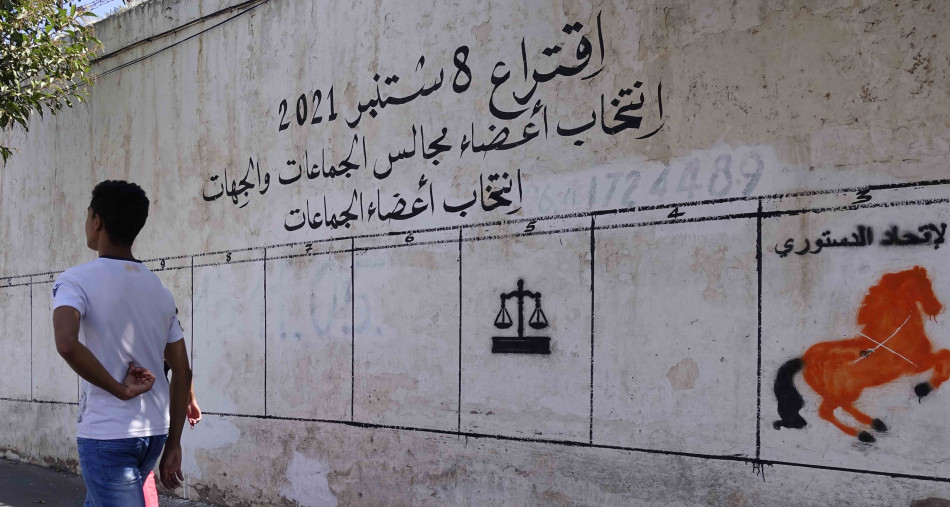 اقتراع 8 شتنبر 2021
انتخاب أعضاء مجالس الجماعات والجهات
انتخاب أعضاء الجماعات
3 4 5 6 7 8 9
لإتحاد الدستوري